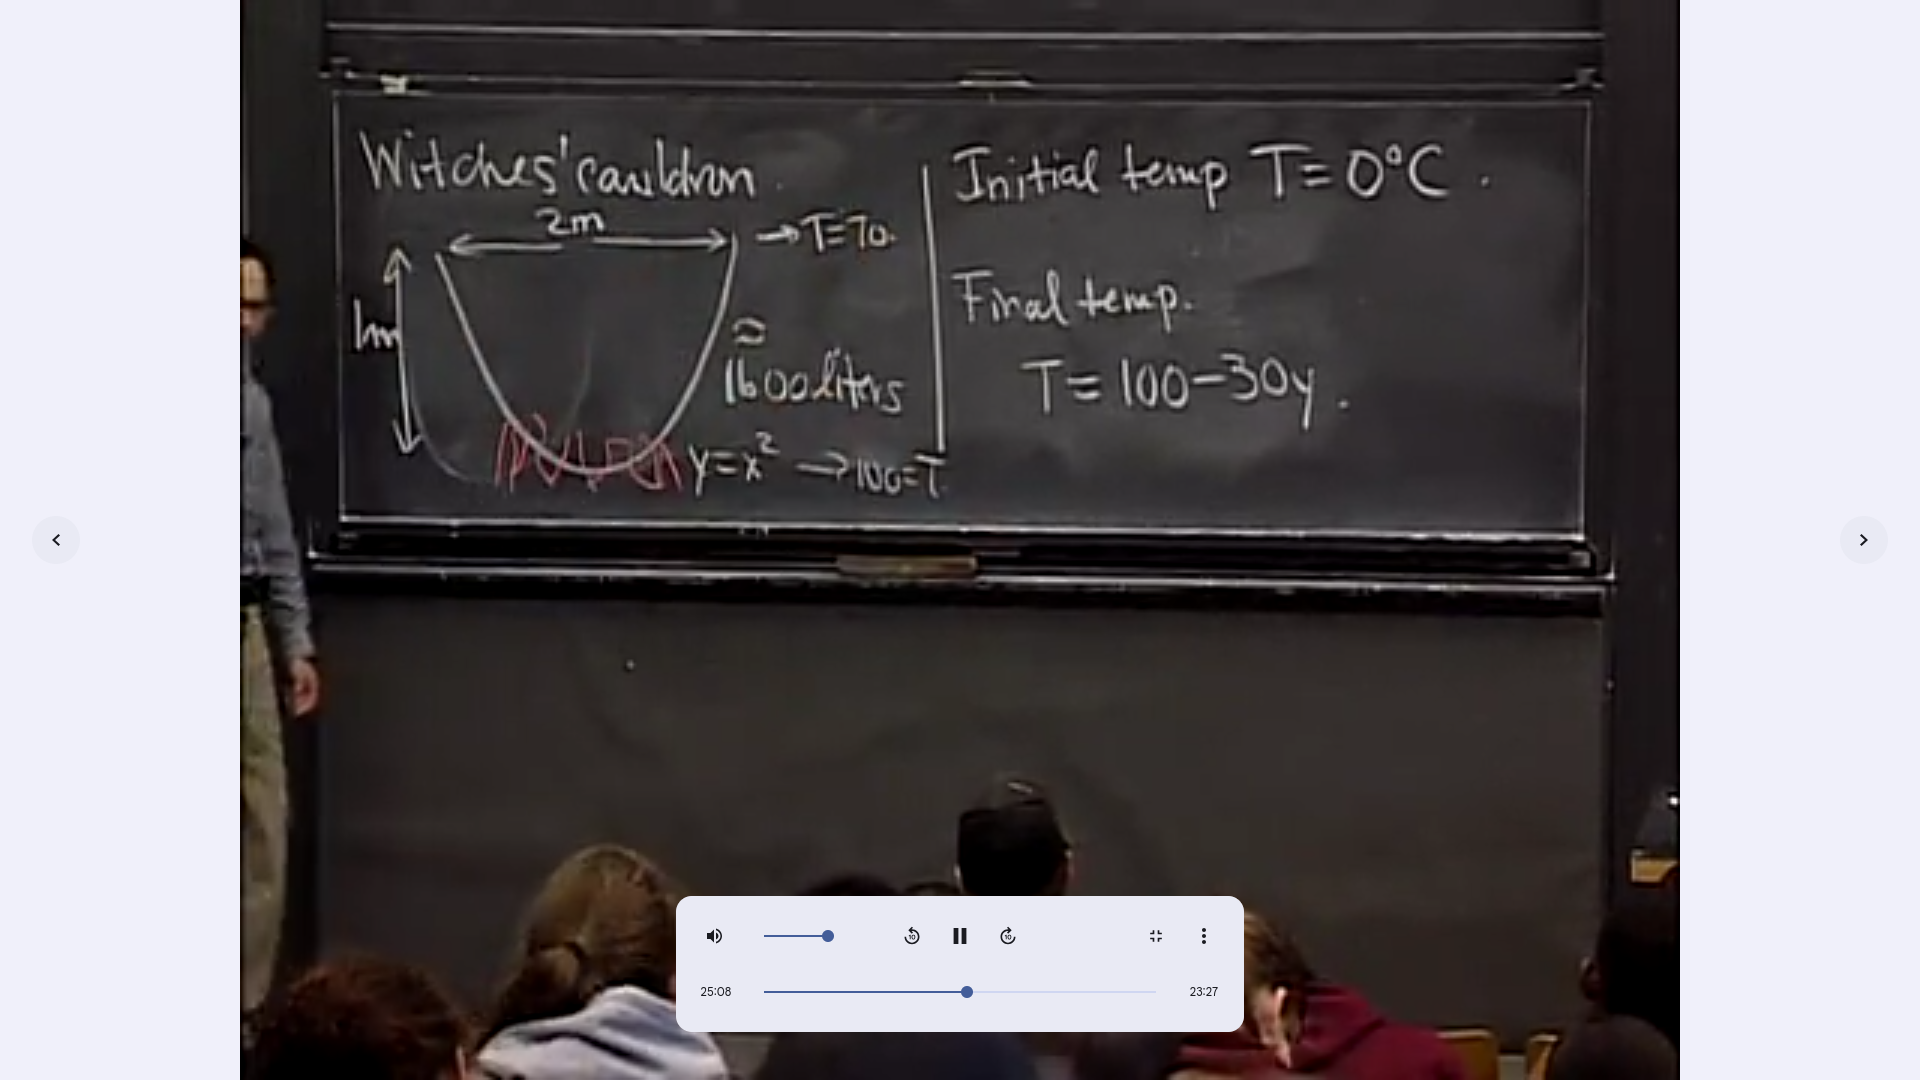 Witches' cauldron
2m
→ T=70.
1m
≈
1600 liters
y=x² → 100=T
Initial temp T=0°C.
Final temp.
T=100-30y.
10
10
25:08
23:27